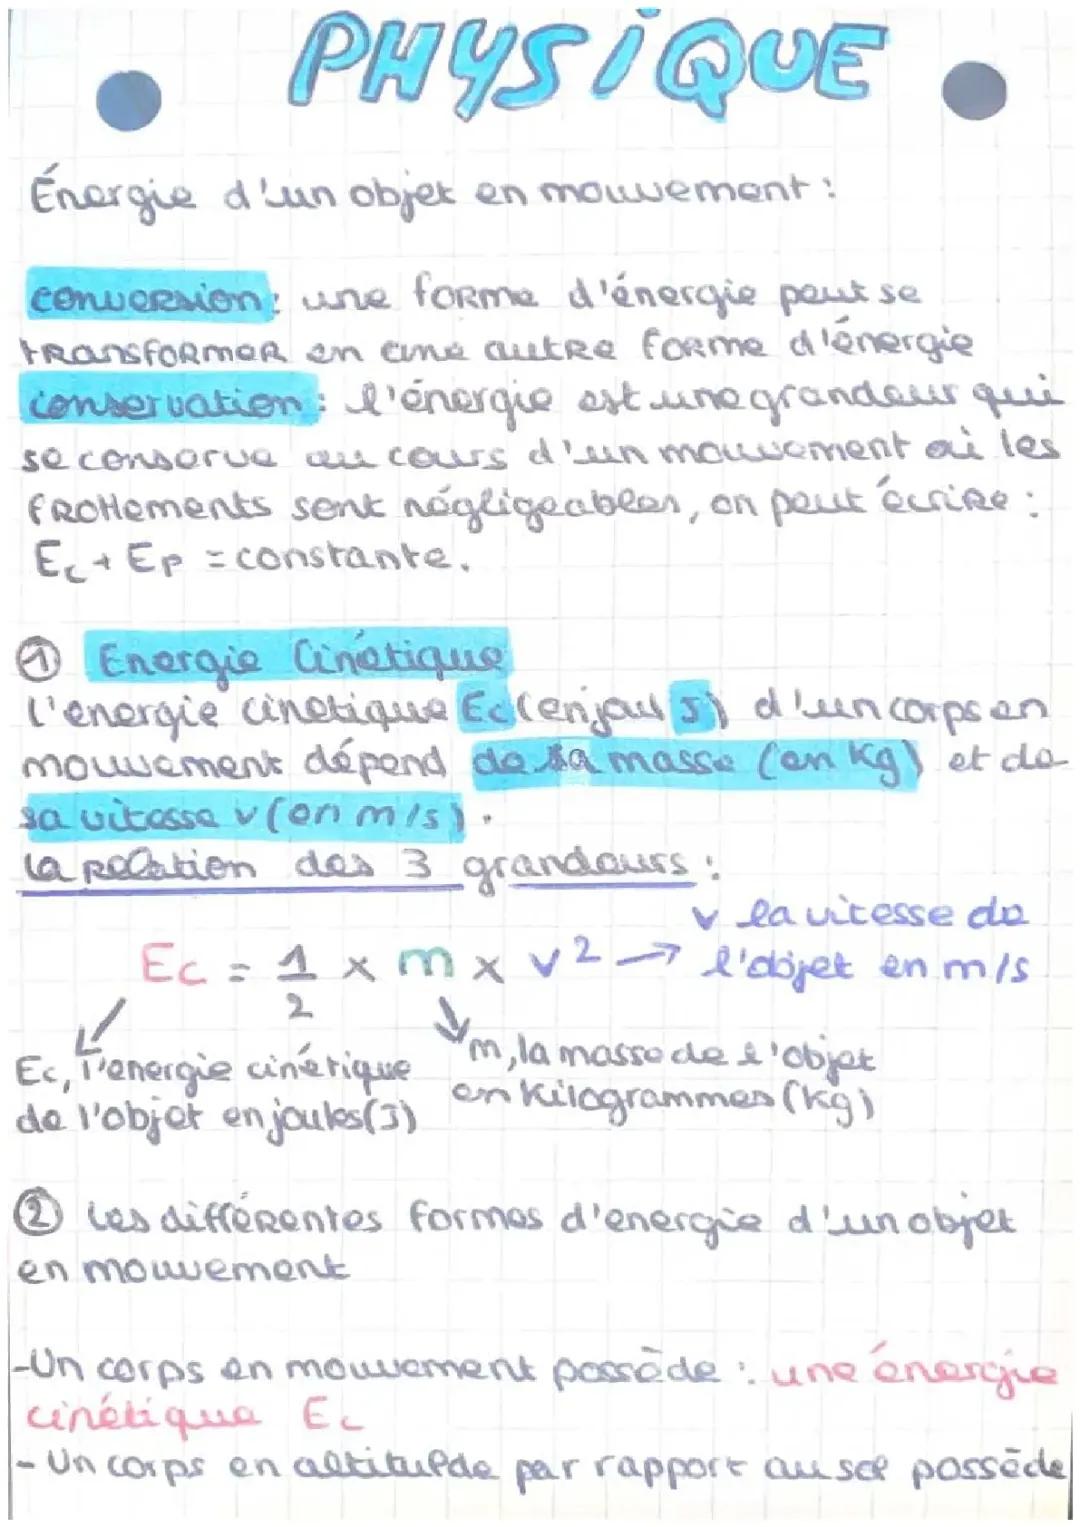 PHYSIQUE
Énergie d'un objet en mouvement :
conversion : une forme d'énergie peut se
transformer en une autre forme d'énergie
conservation : l'énergie est une grandeur qui
se conserve au cours d'un mouvement où les
frottements sont négligeables, on peut écrire :
Ec + Ep = constante.
① Energie Cinétique
l'energie cinetique Ec (en joul J) d'un corps en
mouvement dépend de sa masse (en kg) et de
sa vitesse v (en m/s).
la relation des 3 grandeurs :
v la vitesse de
Ec = 1/2 x m x v² → l'objet en m/s
Ec, l'energie cinétique
de l'objet en joules (J)
m, la masse de l'objet
en kilogrammes (kg)
② les différentes formes d'energie d'un objet
en mouvement
-Un corps en mouvement possède : une énergie
cinétique Ec
- Un corps en altitude par rapport au sol possède